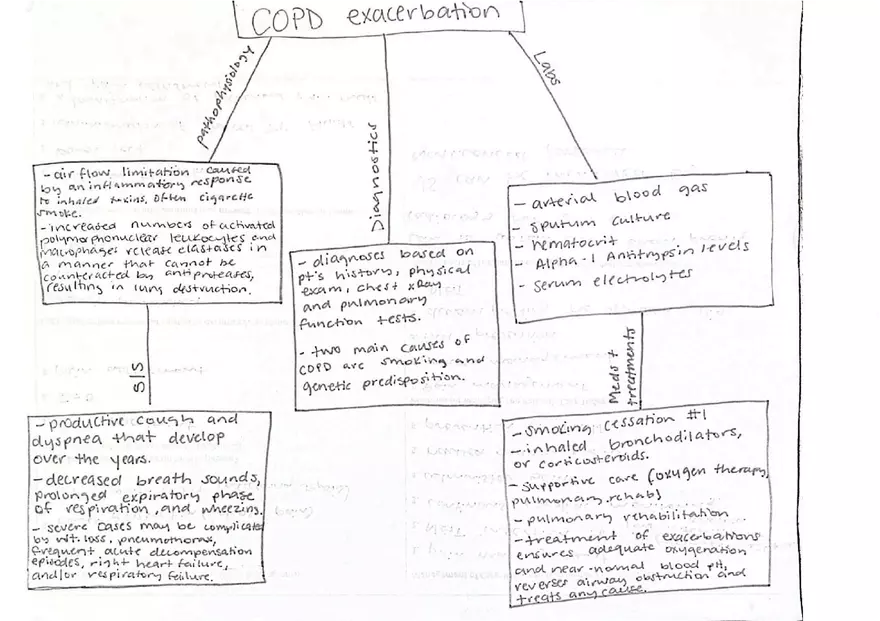 COPD exacerbation
pathophysiology
Diagnostics
Labs
- air flow limitation caused
by an inflammatory response
to inhaled toxins, often cigarette
smoke.
- increased numbers of activated
polymorphonuclear leukocytes and
macrophages release elastases in
a manner that cannot be
counteracted by antiproteases,
resulting in lung destruction.
- diagnoses based on
pt's history, physical
exam, chest xRay
and pulmonary
function tests.
- two main causes of
COPD are smoking and
genetic predisposition.
- arterial blood gas
- sputum culture
- hematocrit
- Alpha-1 Antitrypsin levels
- serum electrolytes
S|S
- productive cough and
dyspnea that develop
over the years.
- decreased breath sounds,
prolonged expiratory phase
of respiration, and wheezing.
- severe cases may be complicated
by wt. loss, pneumothorax,
frequent acute decompensation
episodes, right heart failure,
and/or respiratory failure.
Meds +
treatments
- smoking cessation #1
- inhaled bronchodilators,
or corticosteroids.
- supportive care (oxygen therapy,
pulmonary rehab)
- pulmonary rehabilitation
- treatment of exacerbations
ensures adequate oxygenation
and near-normal blood pH,
reverses airway obstruction and
treats any cause.